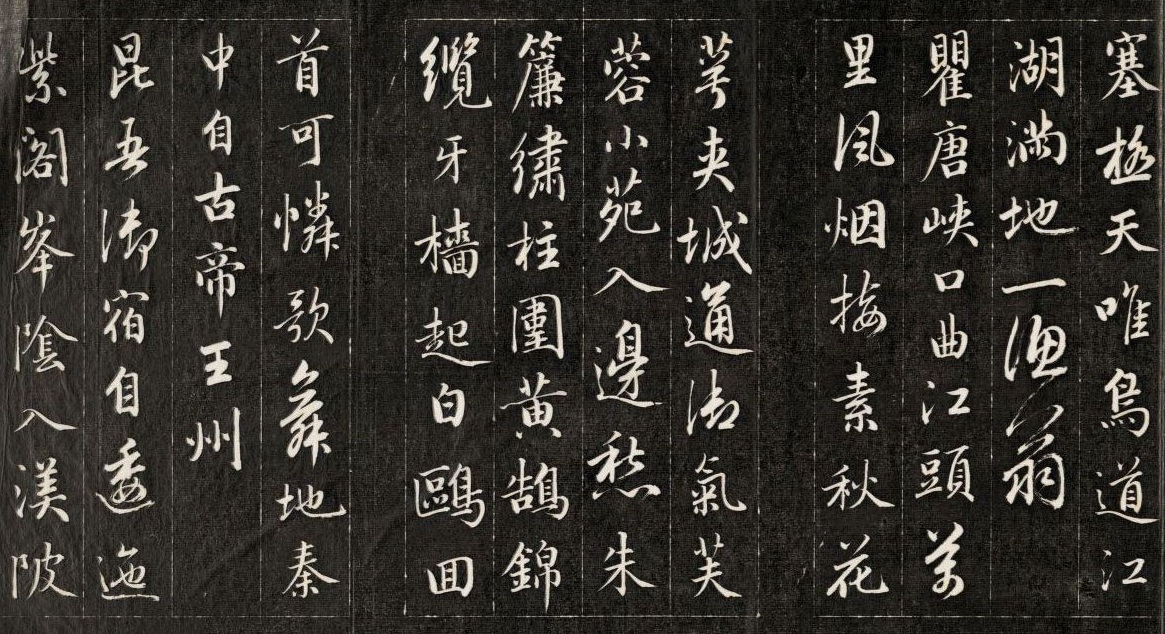 塞極天唯鳥道江
湖滿地一漁翁
瞿唐峽口曲江頭萬
里風烟接素秋花
萼夹城通御氣芙
蓉小苑入邊愁朱
簾繡柱圍黄鵠錦
纜牙檣起白鷗回
首可憐歌舞地秦
中自古帝王州
昆吾御宿自逶迤
紫閣峯陰入渼陂